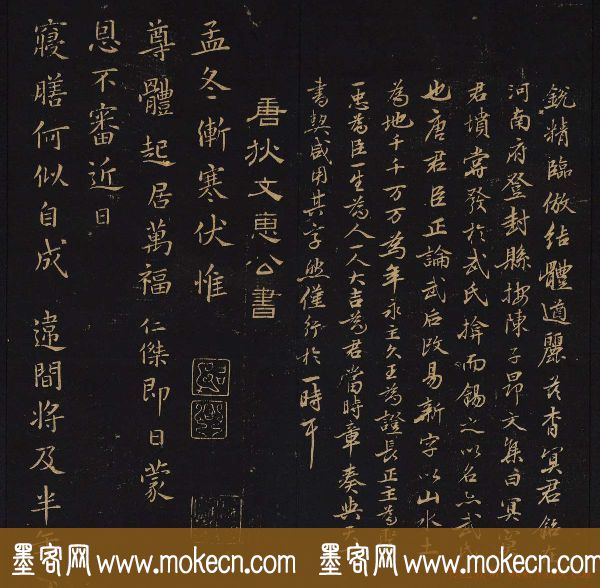 銳精臨倣結體遒麗茲者冥君銘在
河南府登封縣按陳子昂文集白冥寞
君墳嘗發於武氏揜而錫之以名亦武氏
也唐君臣正論武后改易新字以山水土
為地千千万万為年永主久王為證長正主為聖
一忠為臣一生為人一人大吉為君當時章奏與天
書契咸用其字然僅行於一時耳
唐狄文惠公書
孟冬漸寒伏惟
尊體起居萬福仁傑即日蒙
恩不審近日
寢膳何似自成 違間將及半
墨客网www.mokecn.com 墨客网www.mokecn.com